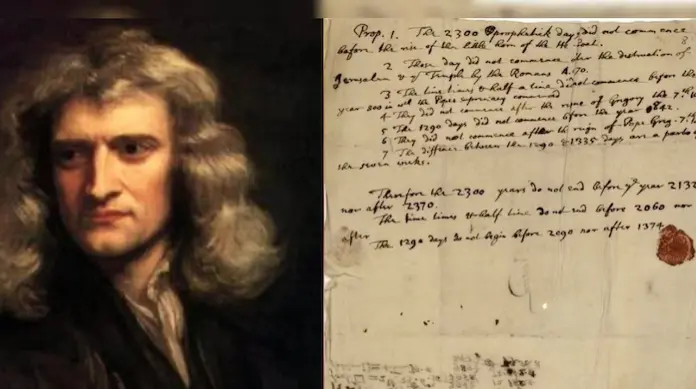 Prop. 1. The 2300 prophetick days did not commence
before the rise of the little horn of the He Goat.
2 Those day did not commence after the destruction of
Jerusalem & ye Temple by the Romans A. 70.
3 The time times & half a time did not commence before the
year 800 in wch the Popes supremacy commenced
4 They did not commence after the reigne of Gregory the 7th
5 The 1290 days did not commence before the year 842.
6 They did not commence after the reign of Pope Greg. 7th
7 The diffence between the 1290 & 1335 days are a parts of
the seven weeks.
Therefore the 2300 years do not end before ye year 2132
nor after 2370.
The time times & half time do not end before 2060 nor
after
The 1290 days do not begin before 2090 nor after 1374